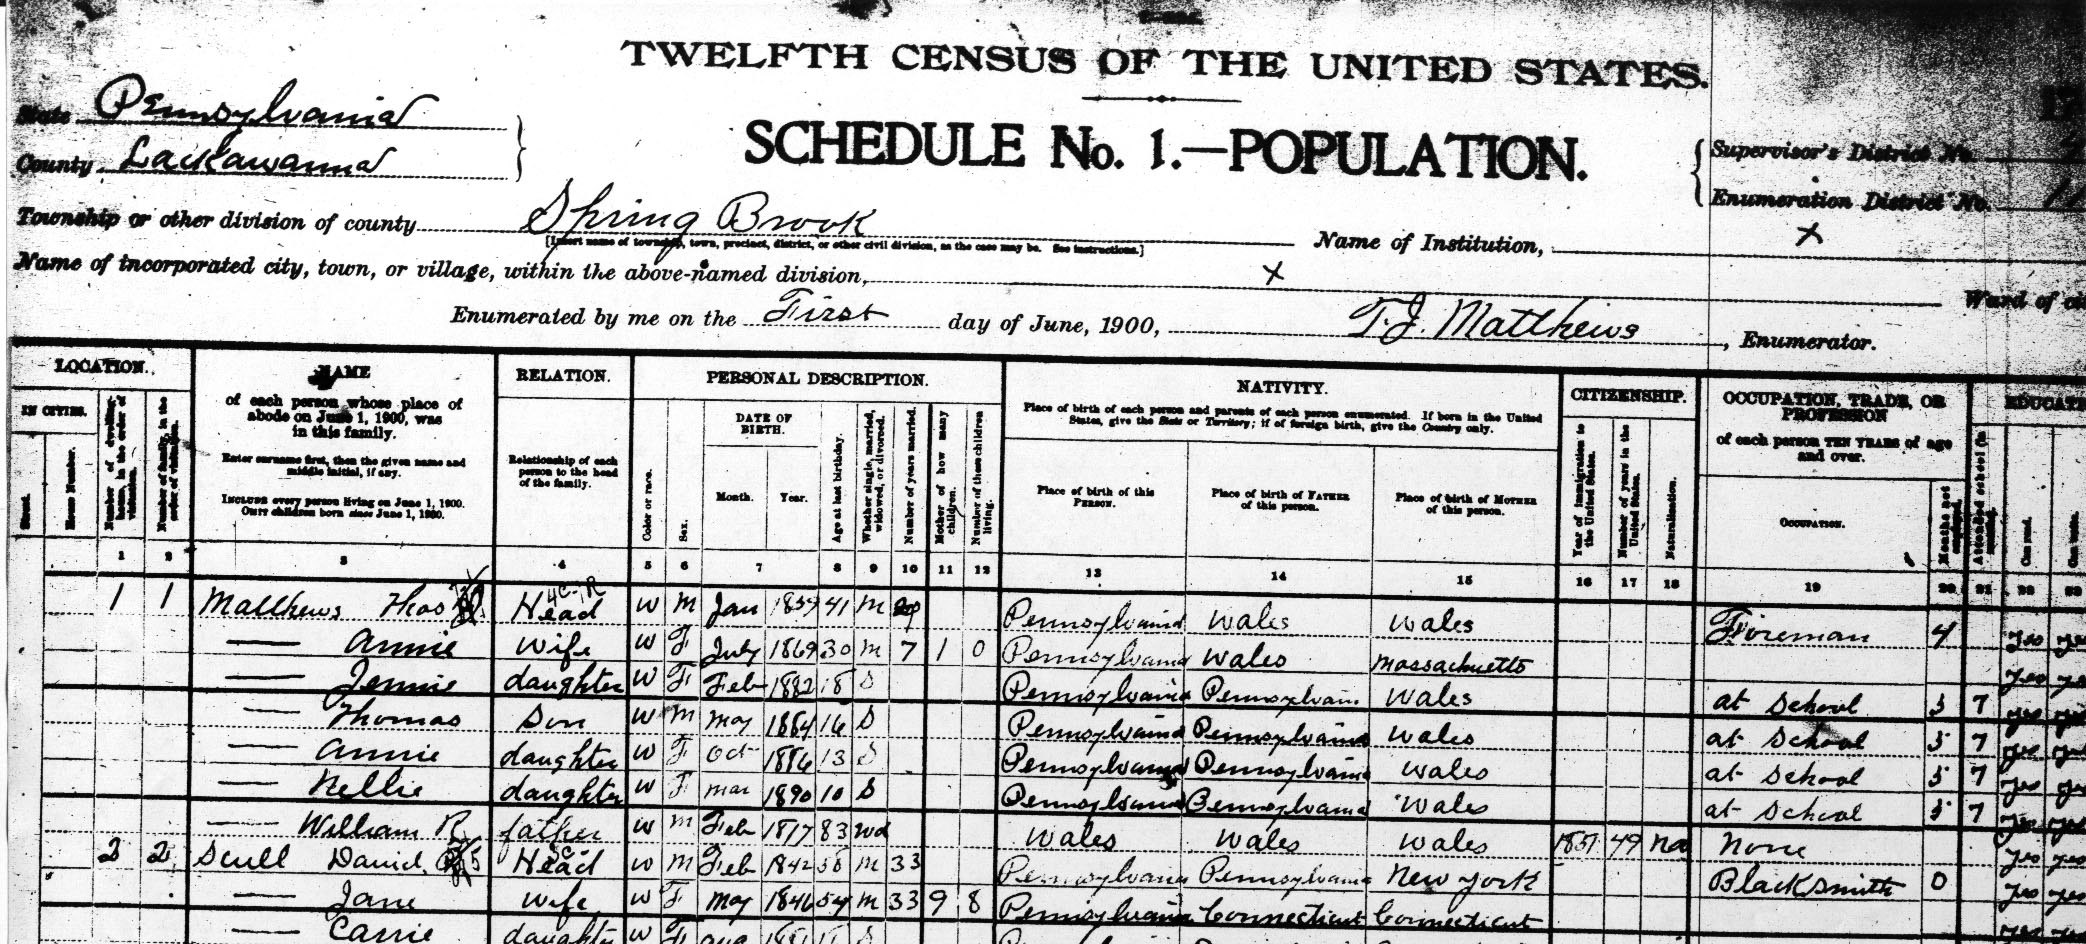 TWELFTH CENSUS OF THE UNITED STATES.
State Pennsylvania
County Lackawanna
SCHEDULE No. 1.—POPULATION.
Supervisor's District No.
Enumeration District No.
Township or other division of county Spring Brook
[Insert name of township, town, precinct, district, or other civil division, as the case may be. See instructions.]
Name of Institution, X
Name of incorporated city, town, or village, within the above-named division, X
Ward of
Enumerated by me on the First day of June, 1900, T. J. Matthews, Enumerator.
LOCATION. NAME RELATION. PERSONAL DESCRIPTION. NATIVITY. CITIZENSHIP. OCCUPATION, TRADE, OR PROFESSION
IN CITIES.
Street. House Number.
Number of dwelling-house, in the order of visitation.
Number of family, in the order of visitation.
of each person whose place of abode on June 1, 1900, was in this family.
Enter surname first, then the given name and middle initial, if any.
INCLUDE every person living on June 1, 1900.
OMIT children born since June 1, 1900.
Relationship of each person to the head of the family.
Color or race.
Sex.
DATE OF BIRTH.
Month. Year.
Age at last birthday.
Whether single, married, widowed, or divorced.
Number of years married.
Mother of how many children.
Number of these children living.
Place of birth of each person and parents of each person enumerated. If born in the United States, give the State or Territory; if of foreign birth, give the Country only.
Place of birth of this PERSON.
Place of birth of FATHER of this person.
Place of birth of MOTHER of this person.
Year of immigration to the United States.
Number of years in the United States.
Naturalization.
of each person TEN YEARS of age and over.
OCCUPATION.
Months not employed.
Attended school (in months).
Can read.
Can write.
1 2 3 4 5 6 7 8 9 10 11 12 13 14 15 16 17 18 19 20 21 22 23
1 1 Matthews Thos Head W M Jan 1859 41 M Pennsylvania Wales Wales Foreman 4 yes yes
— Annie Wife W F July 1869 30 M 7 1 0 Pennsylvania Wales Massachusetts yes yes
— Jennie daughter W F Feb 1882 18 S Pennsylvania Pennsylvania Wales at School 3 7 yes yes
— Thomas Son W M May 1884 16 S Pennsylvania Pennsylvania Wales at School 3 7 yes yes
— Annie daughter W F Oct 1886 13 S Pennsylvania Pennsylvania Wales at School 3 7 yes yes
— Nellie daughter W F Mar 1890 10 S Pennsylvania Pennsylvania Wales at School 3 7 yes yes
— William R father W M Feb 1817 83 Wd Wales Wales Wales 1851 49 Na None yes yes
2 2 Scull David Head W M Feb 1842 58 M 33 Pennsylvania Pennsylvania New York Blacksmith 0 yes yes
— Jane Wife W F May 1846 54 M 33 9 8 Pennsylvania Connecticut Connecticut yes yes
— Carrie daughter W F Aug S